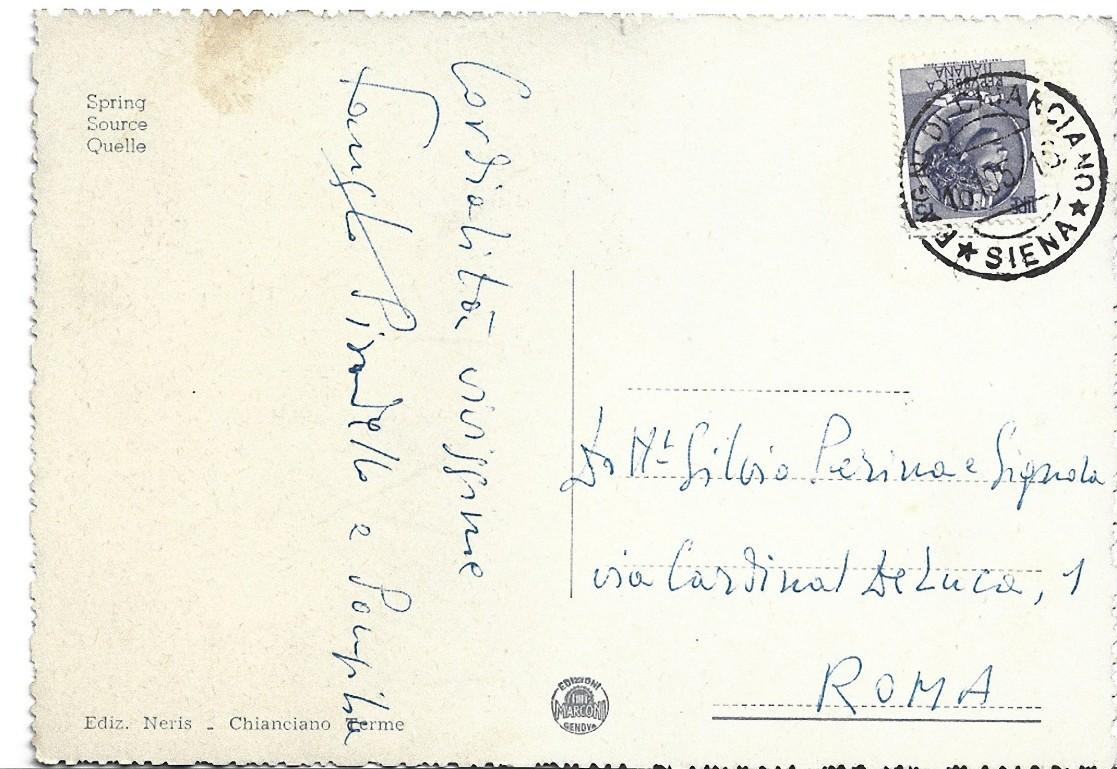 Spring
Source
Quelle
Cordialità vivissime
Fausto Pirandello e Pompilia
REPVBBLICA
ITALIANA
LIRE
BAGNI DI CHIANCIANO
★ SIENA ★
Dr Mt Silvio Perina e Signora
via Cardinal De Luca, 1
ROMA
Ediz. Neris - Chianciano Terme
EDIZIONI
MARCONI
GENOVA